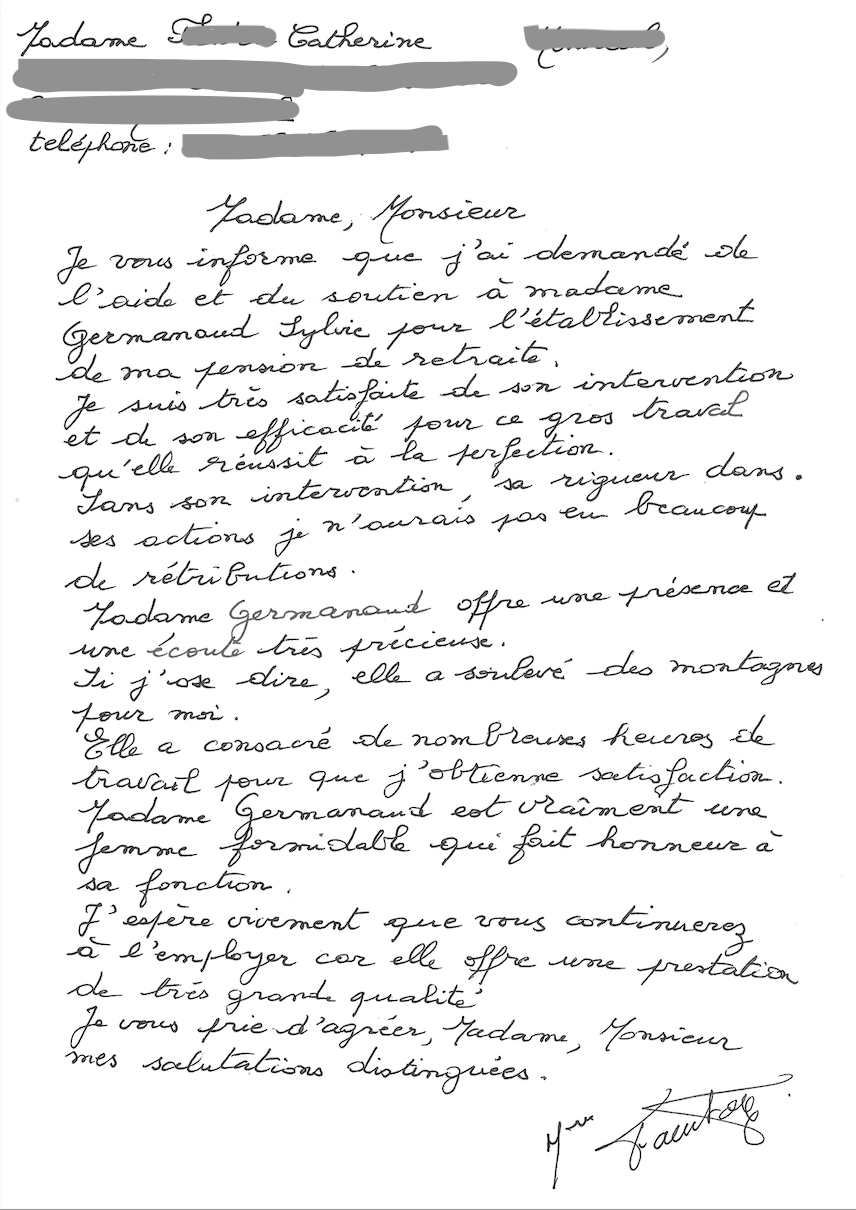 Madame Catherine
teléphone :
Madame, Monsieur
Je vous informe que j'ai demandé de
l'aide et du soutien à madame
Germanaud Sylvie pour l'établissement
de ma pension de retraite.
Je suis très satisfaite de son intervention
et de son efficacité pour ce gros travail
qu'elle réussit à la perfection.
Sans son intervention, sa rigueur dans.
ses actions je n'aurais pas eu beaucoup
de rétributions.
Madame Germanaud offre une présence et
une écoute très précieuse.
Si j'ose dire, elle a soulevé des montagnes
pour moi.
Elle a consacré de nombreuses heures de
travail pour que j'obtienne satisfaction.
Madame Germanaud est vraîment une
femme formidable qui fait honneur à
sa fonction.
J'espère vivement que vous continuerez
à l'employer car elle offre une prestation
de trés grande qualité
Je vous prie d'agréer, Madame, Monsieur
mes salutations distinguées.
Mme